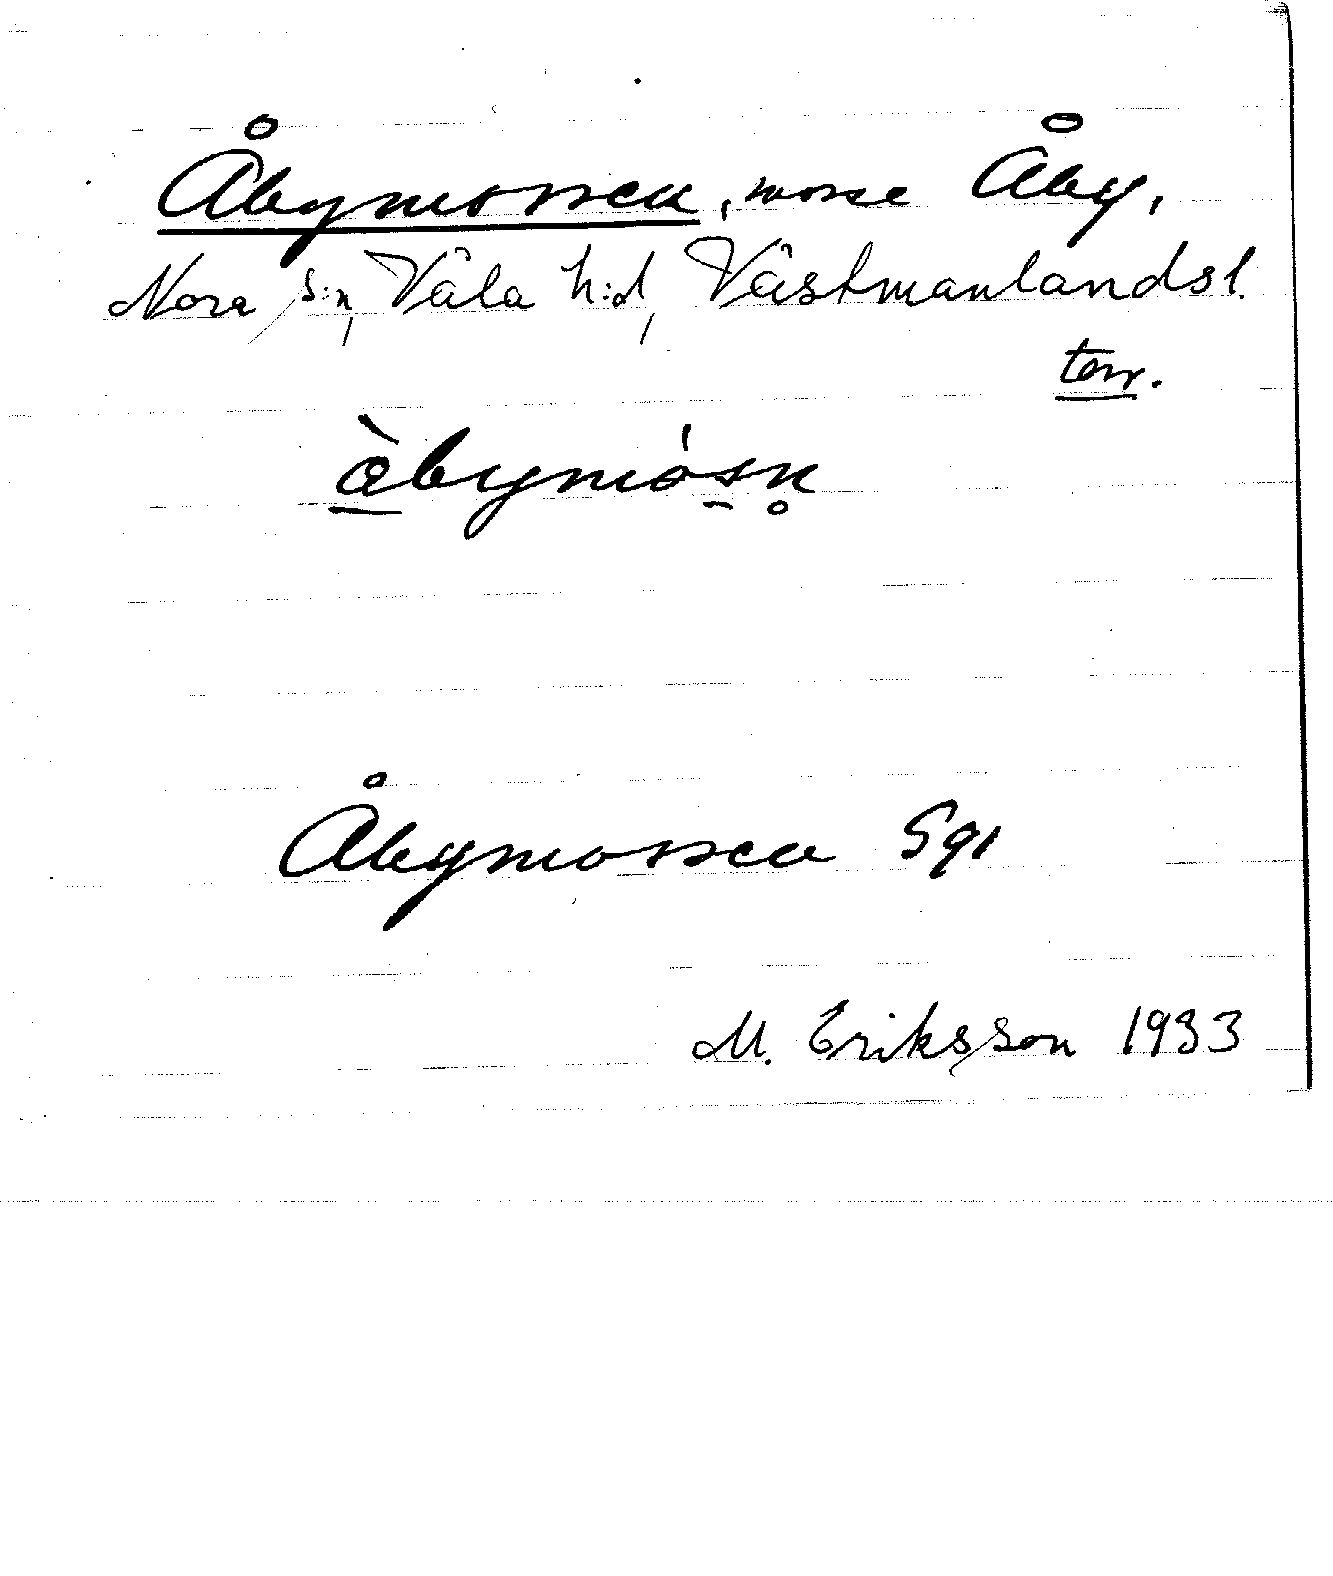 Åbymossen, mosse Åby,
Nora s:n, Våla h:d, Västmanlands l.
terr.
å̀bymósn̥
Åbymossen Sgl
M. Eriksson 1933